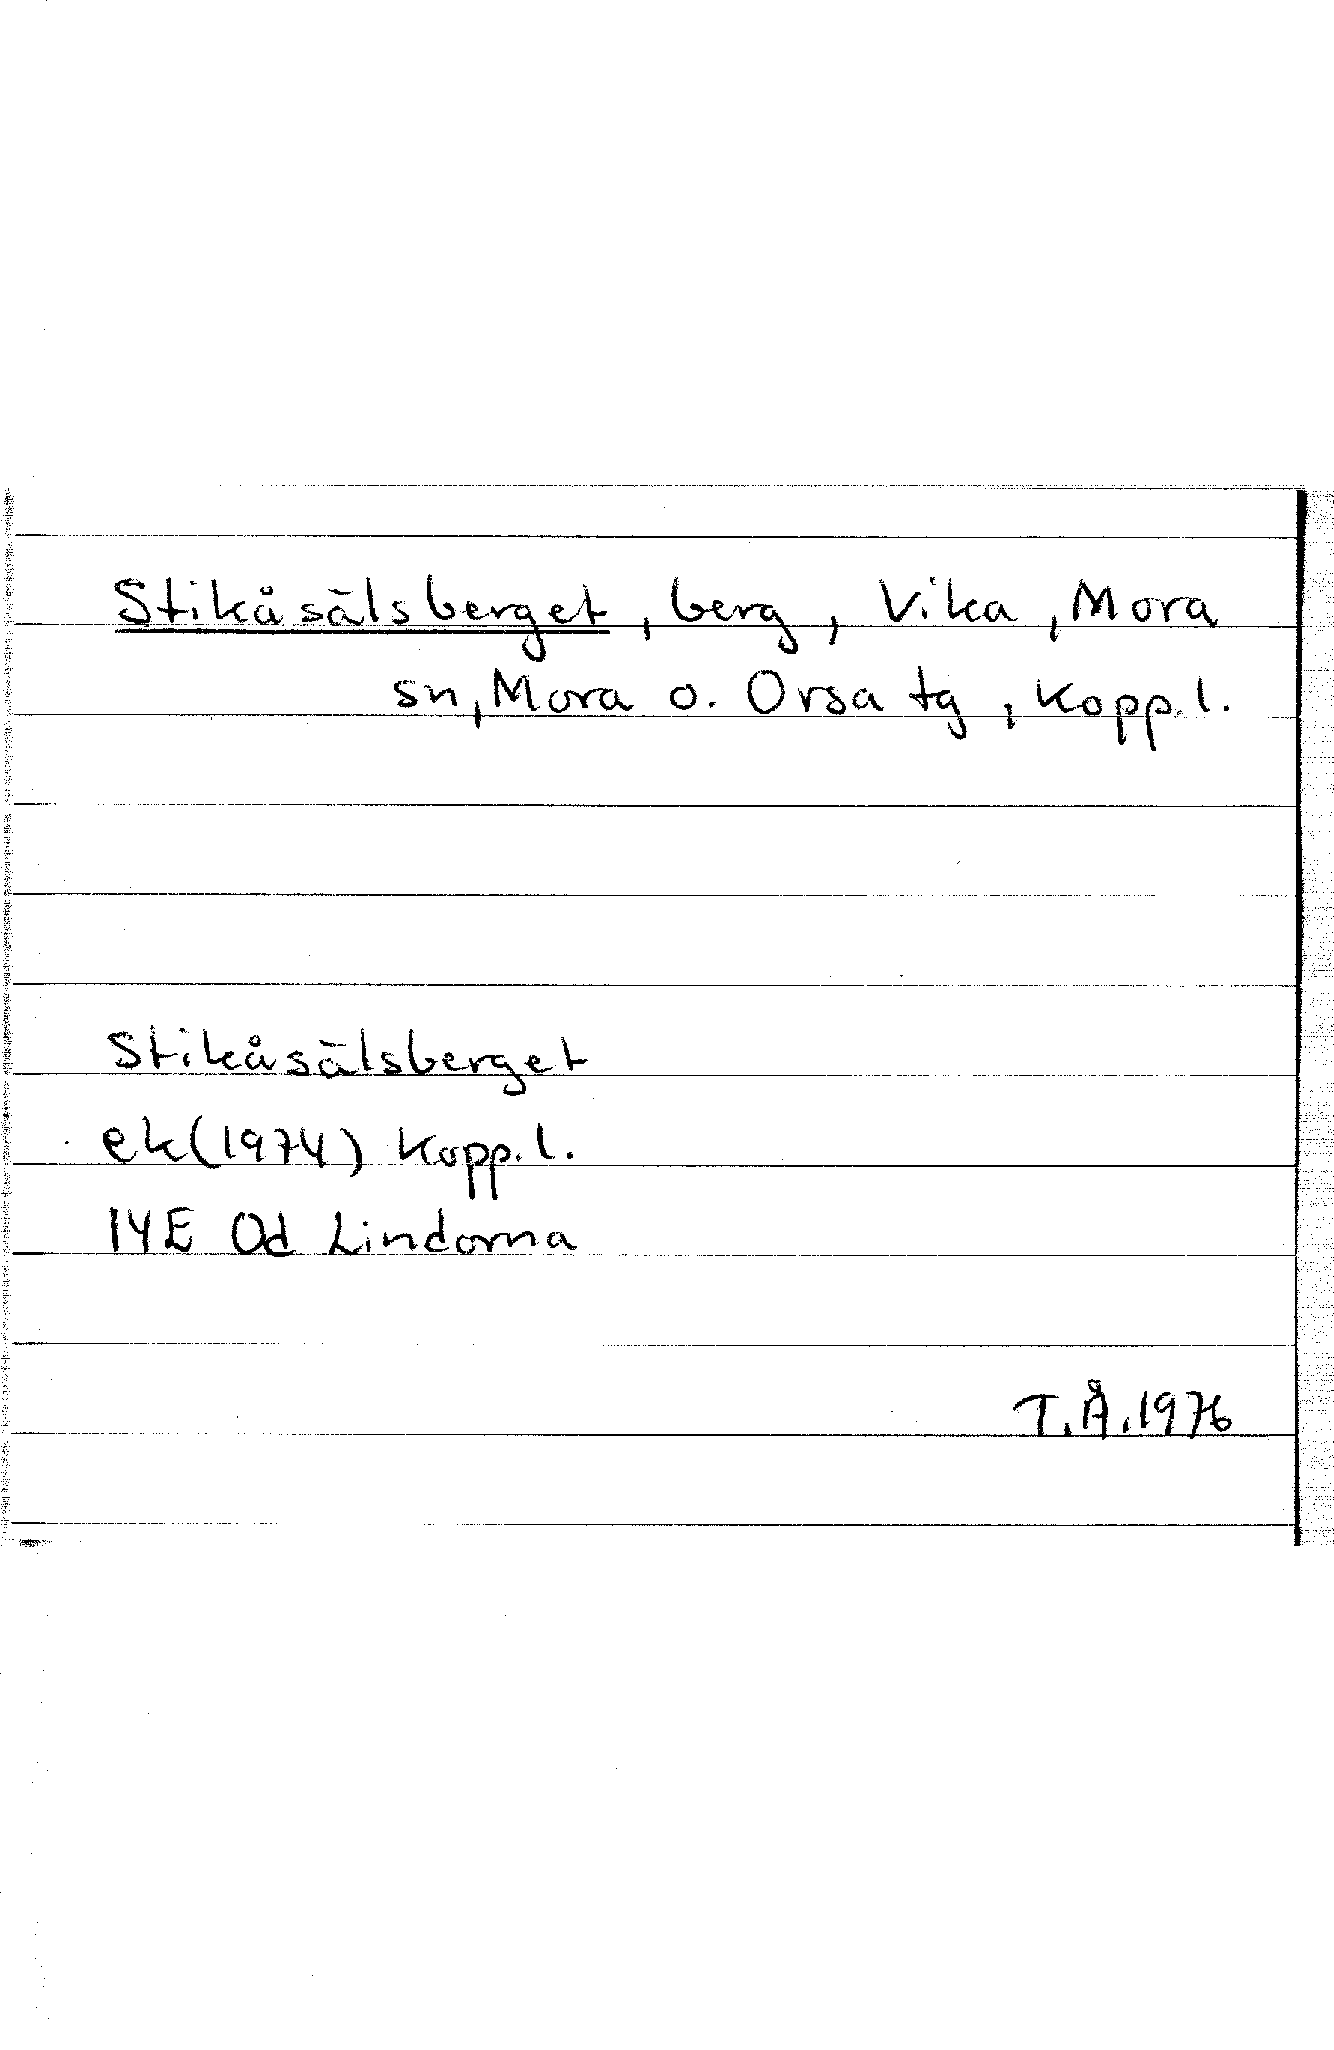 Stikåsälsberget, berg, Vika, Mora
sn, Mora o. Orsa tg, Kopp.l.
Stikåsälsberget
ek(1974) Kopp.l.
14E 0d Lindorna
T.Å.1976